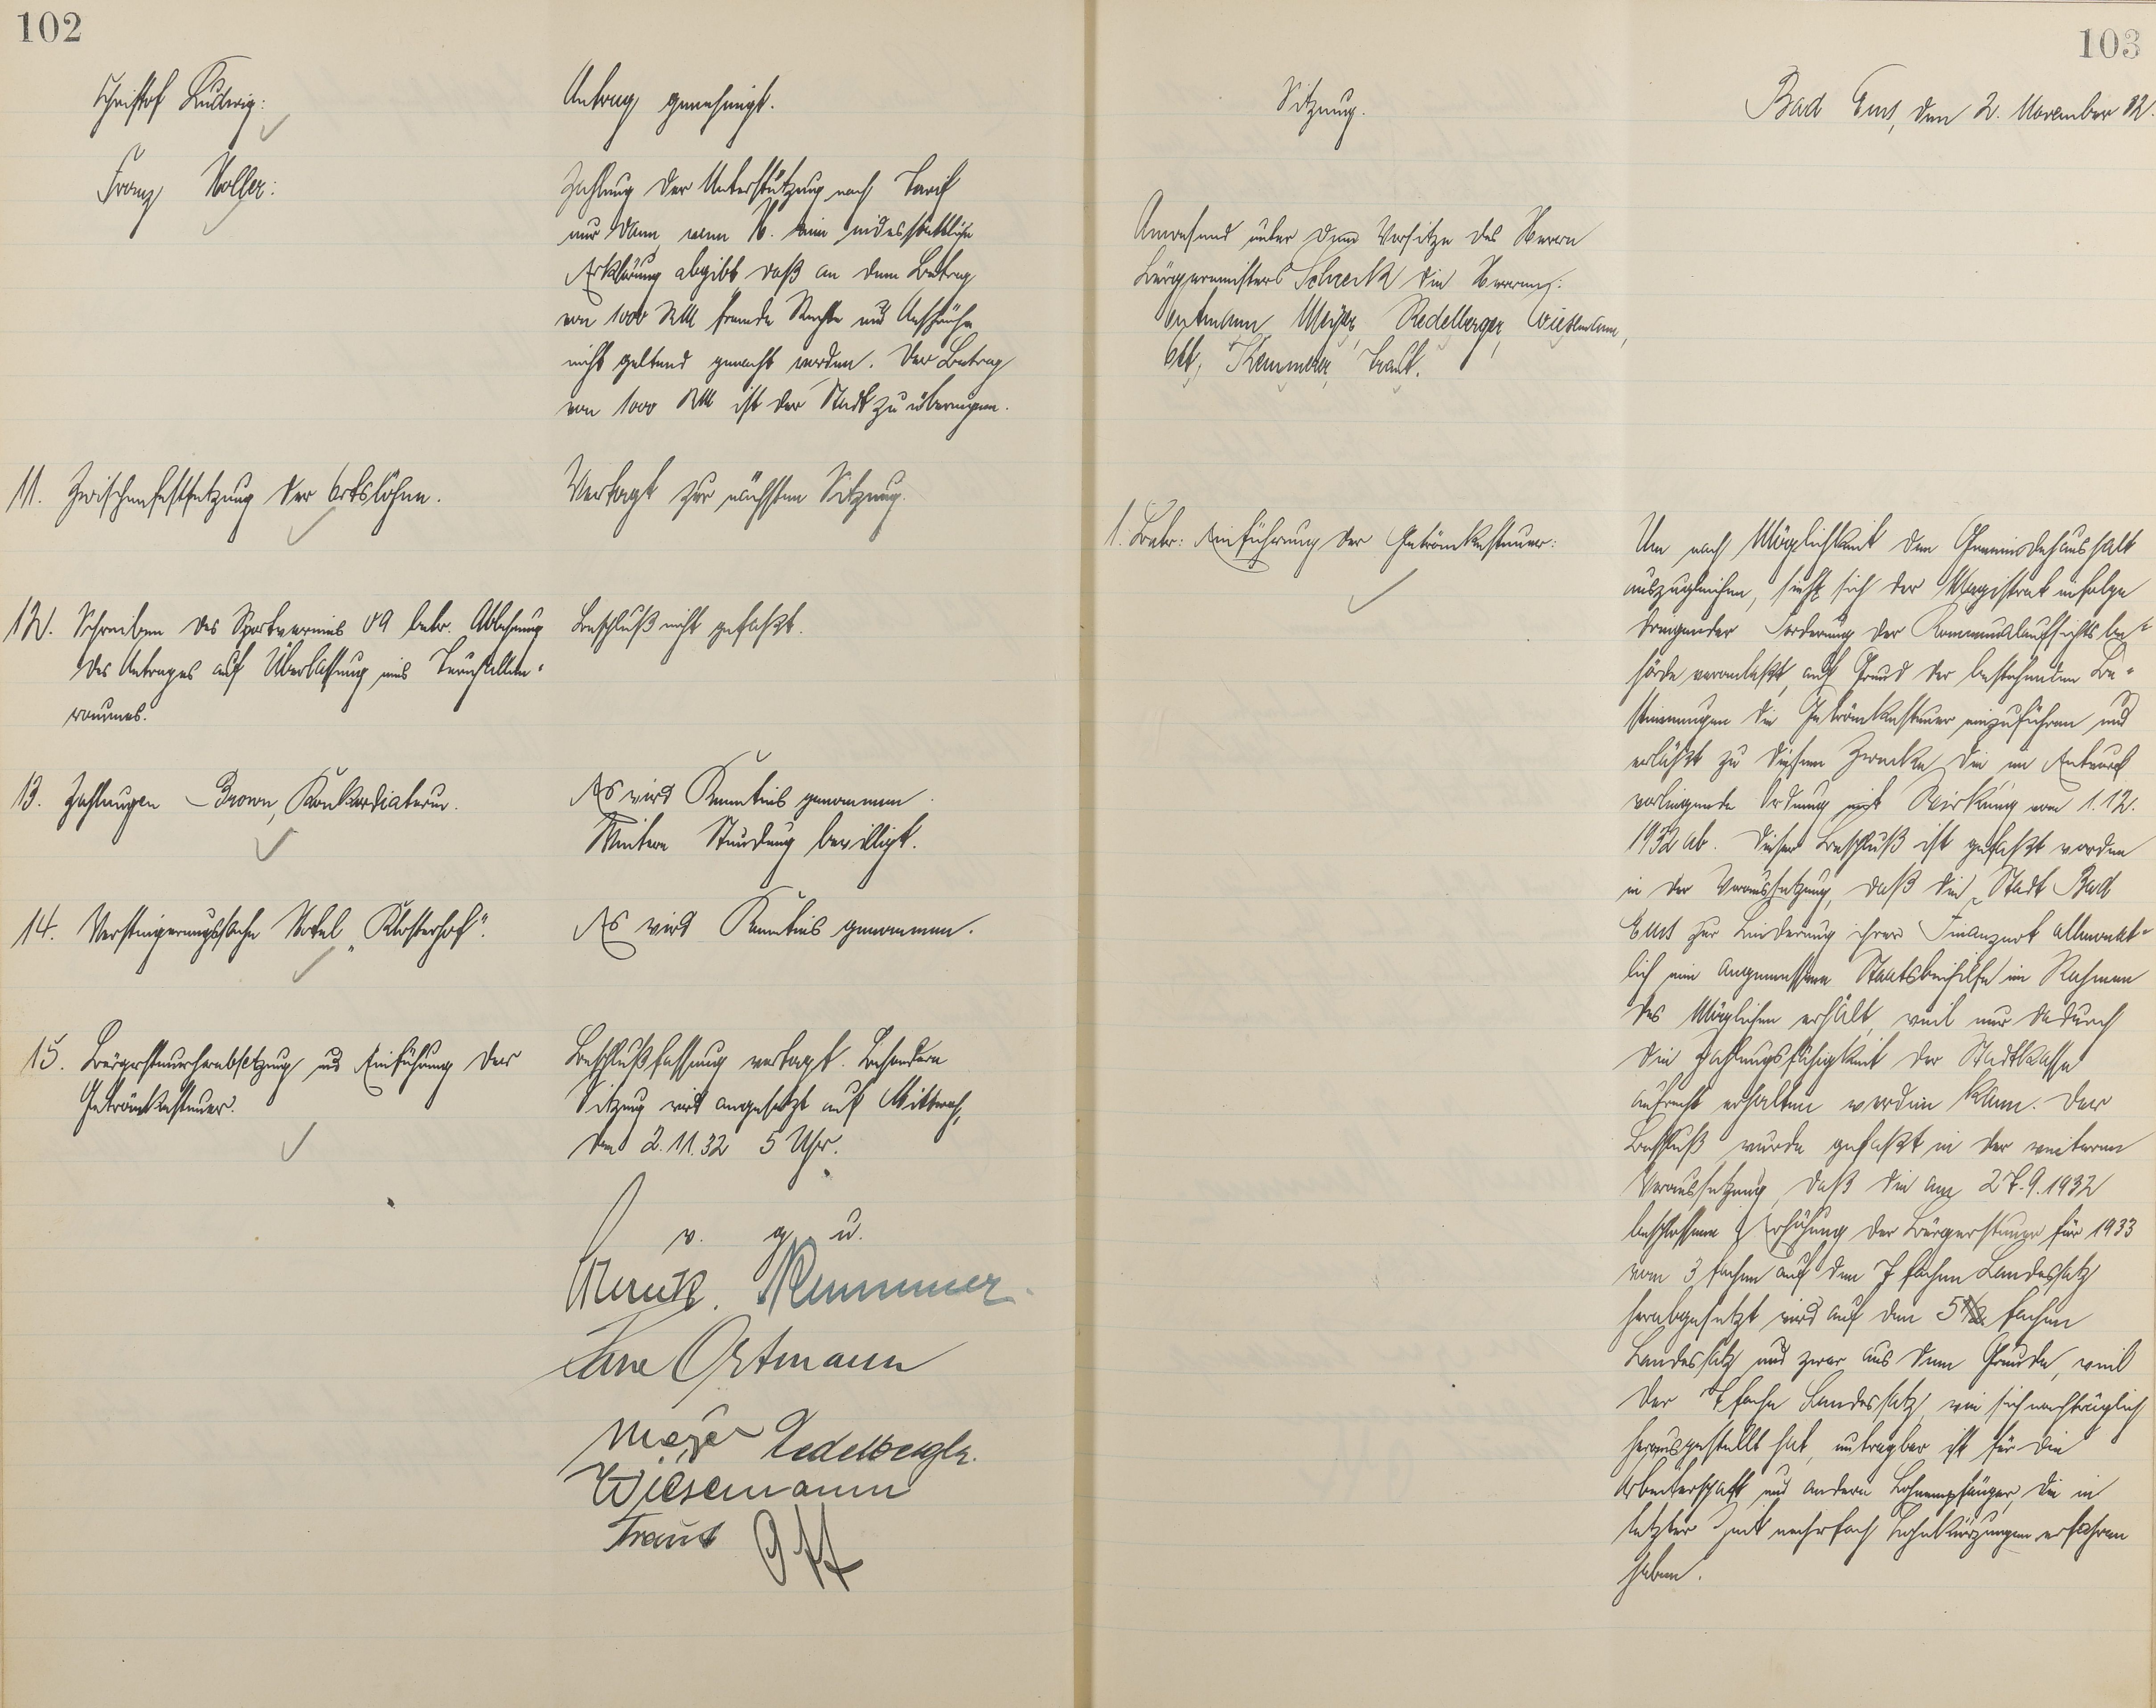 102
Christof Ludwig:
Antrag genehmigt.
Franz Koller:
Zahlung der Unterstützung nach Tarif
nur dann, wenn K. eine eidesstattliche
Erklärung abgibt daß an dem Betrag
von 1000 RM fremde Rechte und Ansprüche
nicht geltend gemacht werden. Der Betrag
von 1000 RM ist der Stadt zu übereignen.
11. Zwischenfestsetzung der Ortslöhne.
Vertagt zur nächsten Sitzung.
12. Schreiben des Sportvereins 09 betr. Ablehnung
des Antrages auf Überlassung eines Turnhallen-
raumes.
Beschluß nicht gefaßt.
13. Zahlungen Brown, Konkordiaturm.
Es wird Kenntnis genommen.
Weitere Stundung bewilligt.
14. Versteigerungssache Hotel „Klosterhof".
Es wird Kenntnis genommen.
15. Bürgersteuerherabsetzung und Einführung der
Getränkesteuer.
Beschlußfassung vertagt. Besondere
Sitzung wird angesetzt auf Mittwoch,
den 2.11.32 5 Uhr.
v. g. u.
Ortmann
Meyer Redelberger.
Wiesemann
Traut Ott
103
Sitzung.
Bad Ems, den 2. November 32.
Anwesend unter dem Vorsitze des Herrn
Bürgermeisters Schreck die Herren:
Ortmann, Meyer, Redelberger, Wiesemann,
Ott, Kemmerer, Traut.
1. Betr: Einführung der Getränkesteuer:
Um nach Möglichkeit den Gemeindehaushalt
auszugleichen, sieht sich der Magistrat infolge
dringender Forderung der Kommunalaufsichtsbe-
hörde veranlaßt, auf Grund der bestehenden Be-
stimmungen die Getränkesteuer einzuführen und
erläßt zu diesem Zwecke die im Entwurf
vorliegende Ordnung mit Wirkung vom 1.12.
1932 ab. Dieser Beschluß ist gefaßt worden
in der Voraussetzung, daß die Stadt Bad
Ems zur Linderung ihrer Finanznot allmonat-
lich eine angemessene Staatsbeihilfe im Rahmen
des Möglichen erhält, weil nur dadurch
die Zahlungsfähigkeit der Stadtkasse
aufrecht erhalten werden kann. Der
Beschluß wurde gefaßt in der weiteren
Voraussetzung, daß die am 27.9.1932
beschlossene Erhöhung der Bürgersteuer für 1933
vom 3 fachen auf den 7 fachen Landessatz
herabgesetzt wird auf den 5 fachen
Landessatz und zwar aus dem Grunde, weil
der 7 fache Landessatz, wie sich nachträglich
herausgestellt hat, untragbar ist für die
Arbeiterschaft und andere Lohnempfänger, die in
letzter Zeit mehrfach Lohnkürzungen erfahren
haben.